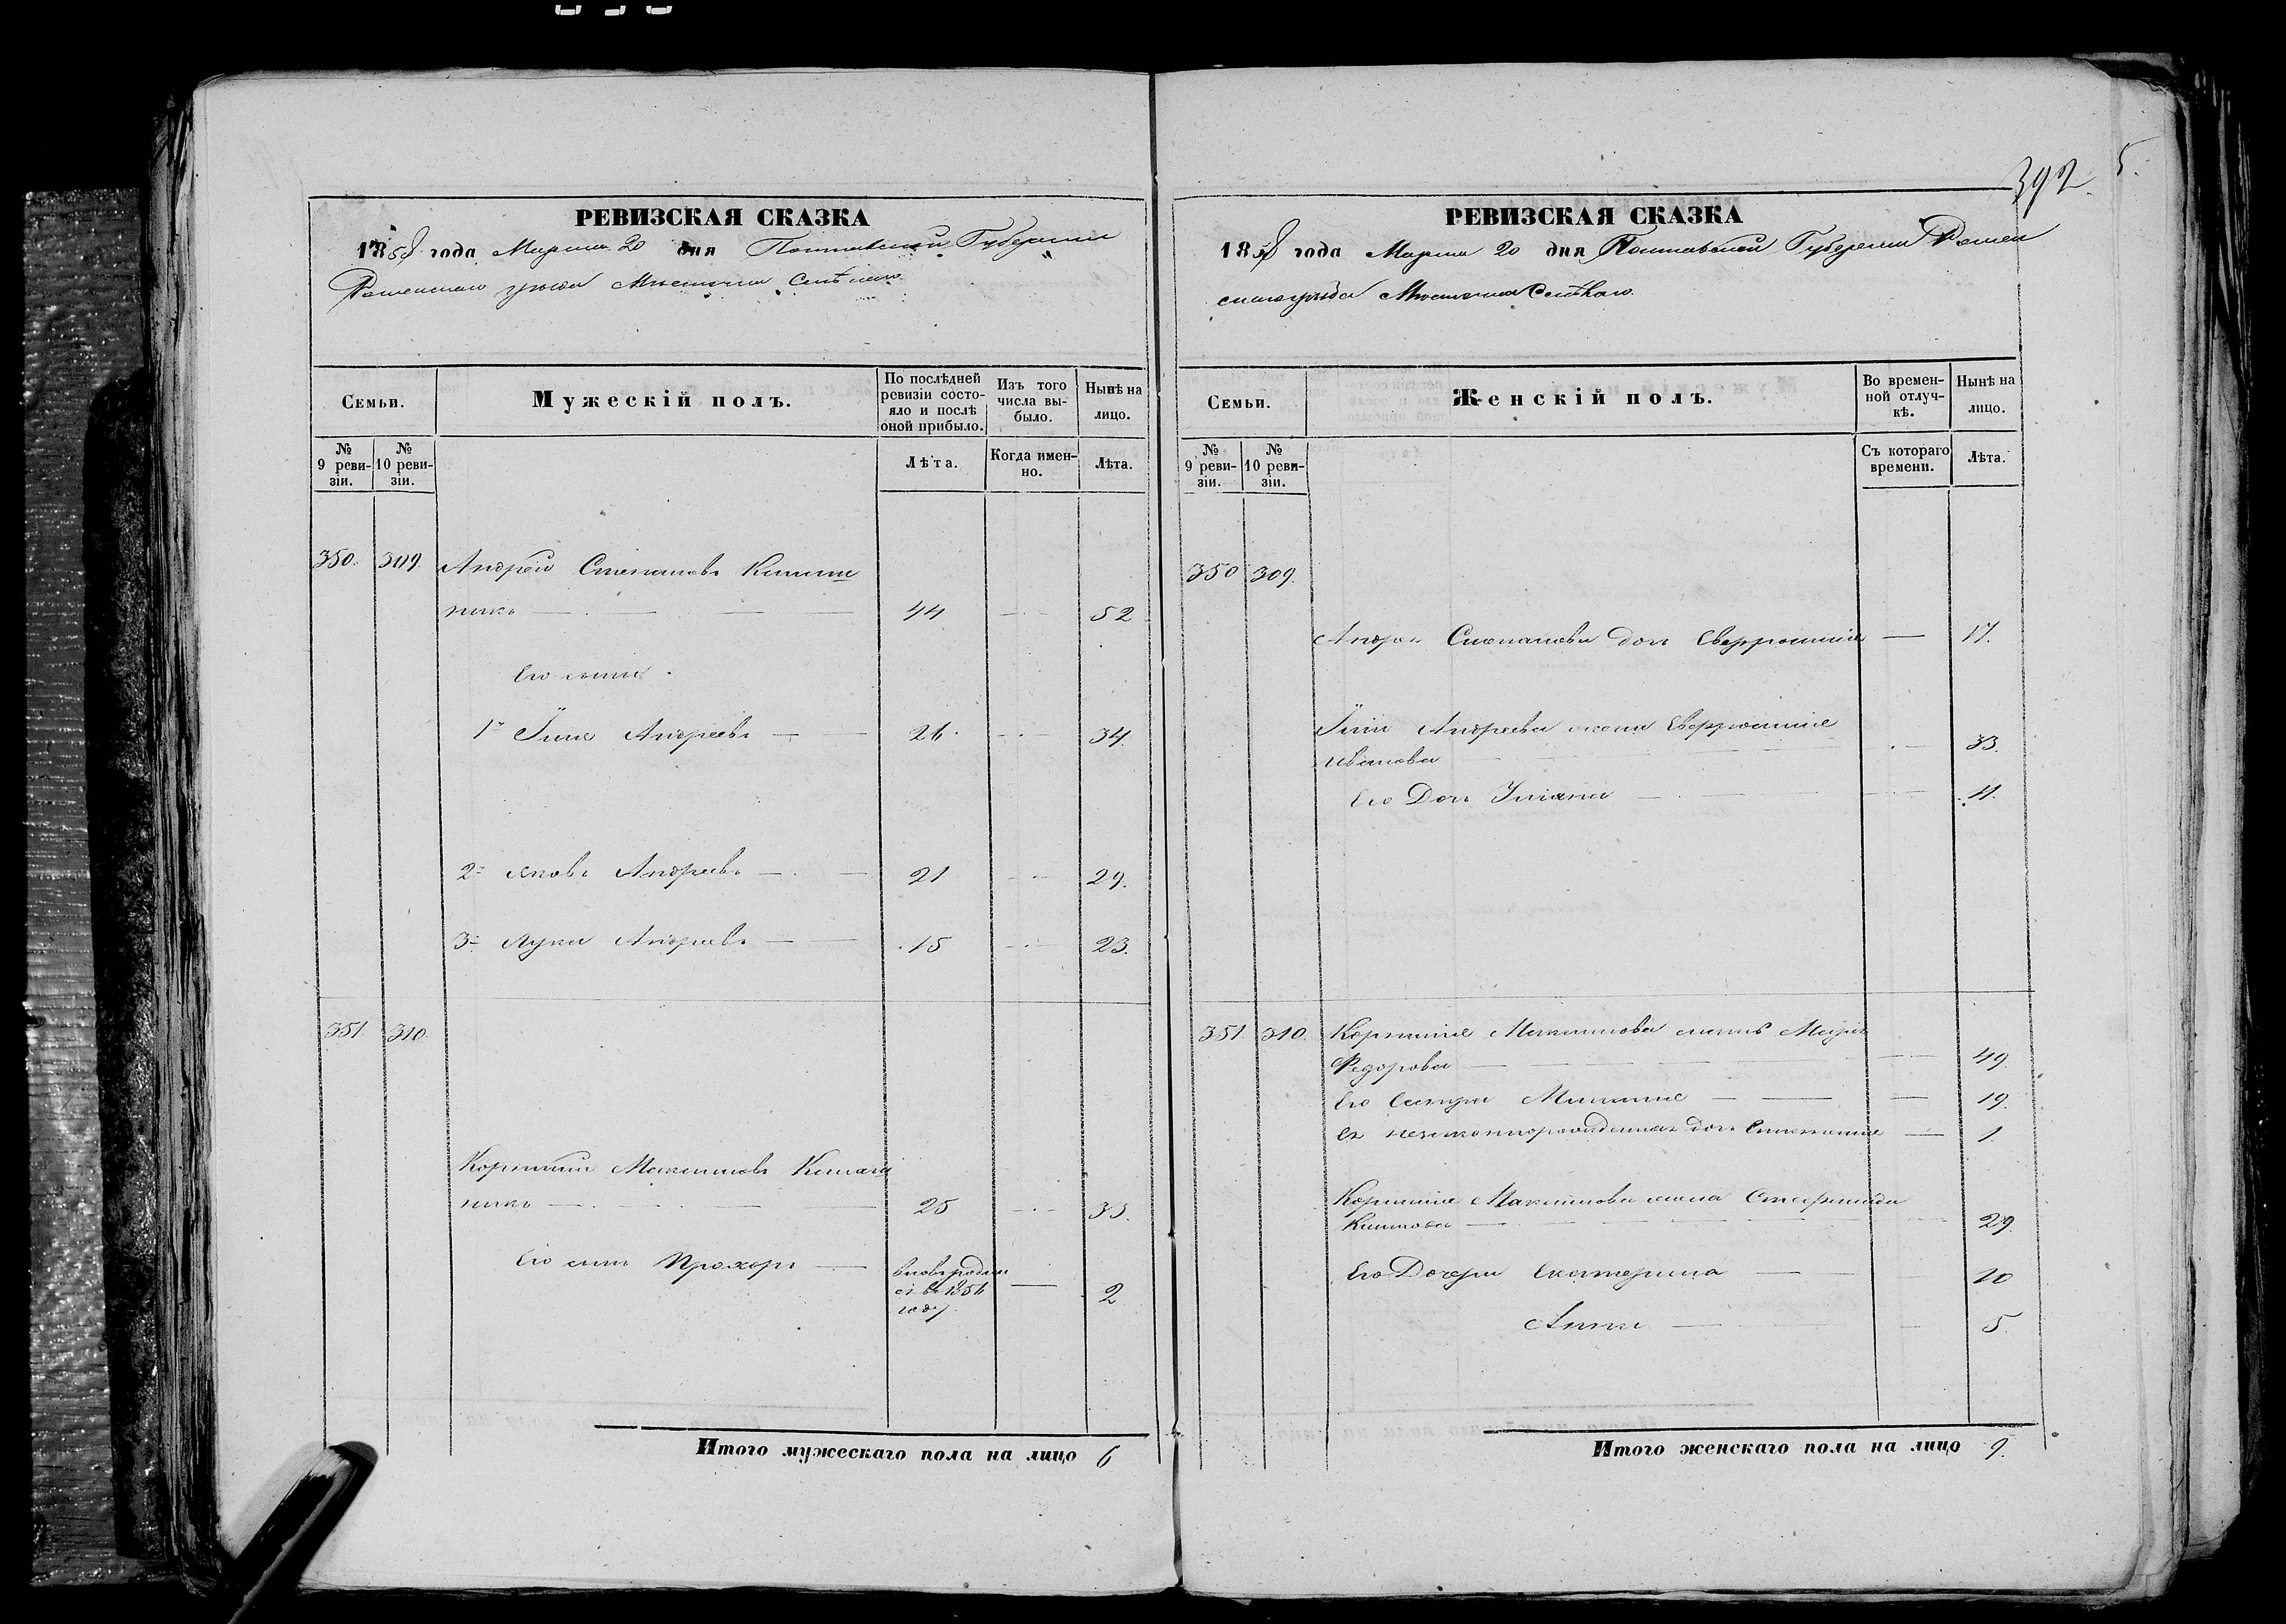 392
5.
РЕВИЗСКАЯ СКАЗКА
1858 года Марта 20 дня Полтавской Губернии
Роменскаго уезда Местечка
Семьи.
Мужескій полъ.
По послѣдней ревизіи состояло и послѣ оной прибыло.
Изъ того числа выбыло.
Нынѣ на лицо.
№ 9 ревизіи.
№ 10 ревизіи.
Лѣта.
Когда именно.
Лѣта.
350. 309. Андрей Степановъ
никъ 44 52
Его сыны
1й Андреевъ 26 34.
2й Яковъ Андреевъ 21 29.
3й Лука Андреевъ 15 23.
351 310.
Корнилий Максимовъ
никъ 25 33.
Его сынъ Прохоръ
вновь родил
ся въ 1856
году 2
Итого мужескаго пола на лицо 6
РЕВИЗСКАЯ СКАЗКА
1858 года Марта 20 дня Полтавской Губернии Ромен
скаго уезда Местечка
Семьи.
Женскій полъ.
Во временной отлучкѣ.
Нынѣ на лицо.
№ 9 ревизіи.
№ 10 ревизіи.
Съ котораго времени.
Лѣта.
350 309.
Андрея Степанова дочь Евфросиния 17.
Андреева жена Евфросиния
Иванова 33.
Его Дочь 11.
351. 310. Корнилия Максимова мать
Федорова 49.
Его Сестра 19.
Ея незаконнорожденная дочь Степанида 1
Корнилия Максимова жена Степанида
Климова 29.
Его Дочери Екатерина 10
Анна 5.
Итого женскаго пола на лицо 9.